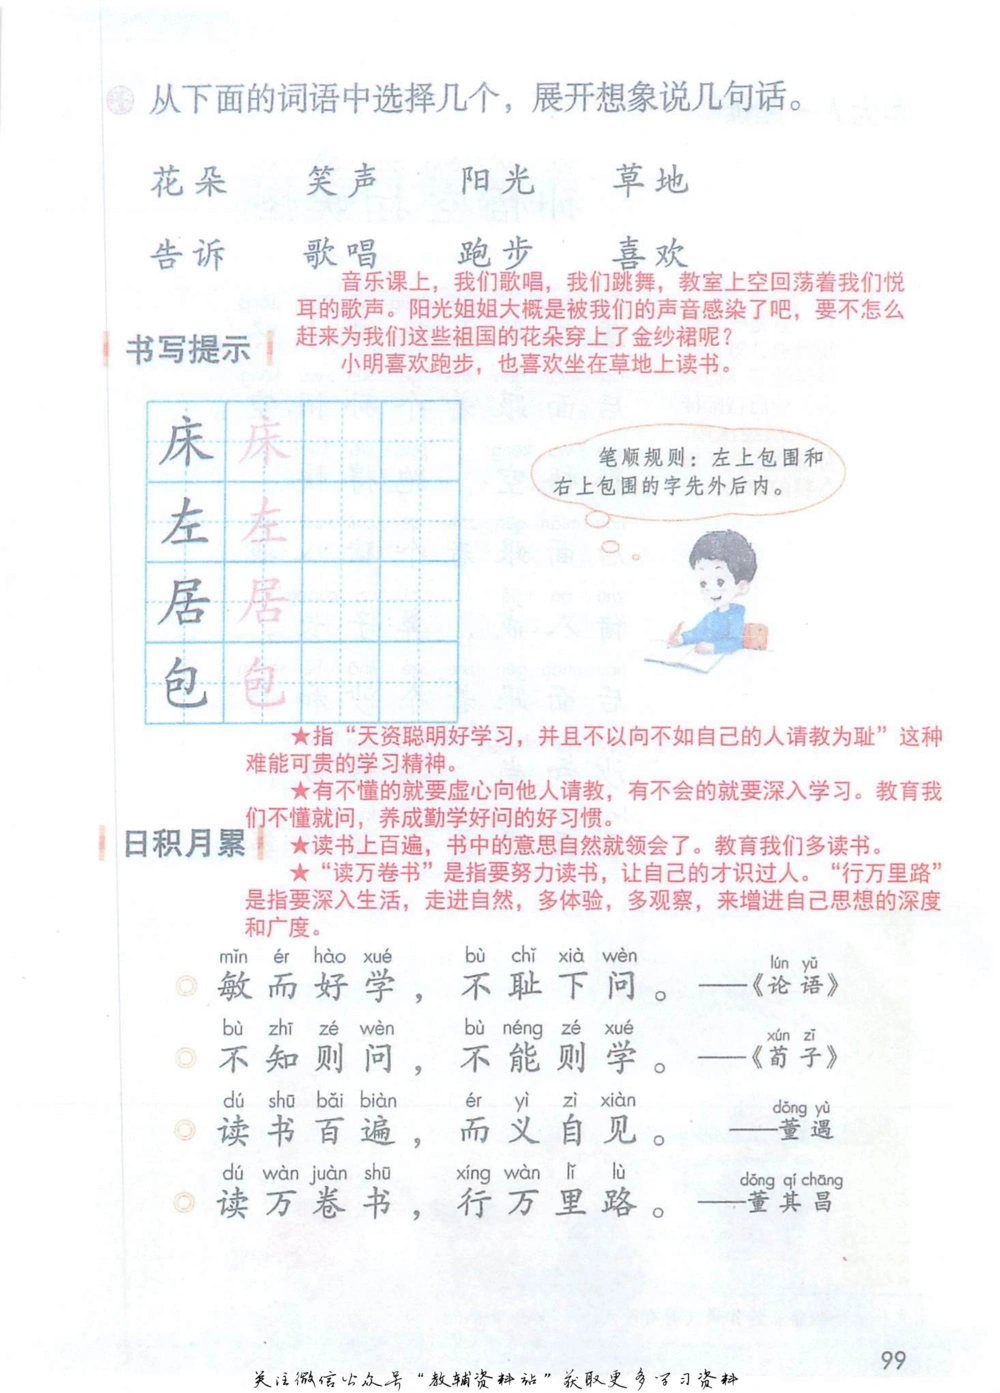 从下面的词语中选择几个，展开想象说几句话。
花朵 笑声 阳光 草地
告诉 歌唱 跑步 喜欢
音乐课上，我们歌唱，我们跳舞，教室上空回荡着我们悦
耳的歌声。阳光姐姐大概是被我们的声音感染了吧，要不怎么
赶来为我们这些祖国的花朵穿上了金纱裙呢？
小明喜欢跑步，也喜欢坐在草地上读书。
书写提示
床 床
左 左
居 居
包 包
笔顺规则：左上包围和
右上包围的字先外后内。
★指“天资聪明好学习，并且不以向不如自己的人请教为耻”这种
难能可贵的学习精神。
★有不懂的就要虚心向他人请教，有不会的就要深入学习。教育我
们不懂就问，养成勤学好问的好习惯。
日积月累
★读书上百遍，书中的意思自然就领会了。教育我们多读书。
★“读万卷书”是指要努力读书，让自己的才识过人。“行万里路”
是指要深入生活，走进自然，多体验，多观察，来增进自己思想的深度
和广度。
mǐn ér hào xué bù chǐ xià wèn lún yǔ
敏而好学，不耻下问。——《论语》
bù zhī zé wèn bù néng zé xué xún zǐ
不知则问，不能则学。——《荀子》
dú shū bǎi biàn ér yì zì xiàn dǒng yù
读书百遍，而义自见。——董遇
dú wàn juàn shū xíng wàn lǐ lù dǒng qí chāng
读万卷书，行万里路。——董其昌
99
关注微信公众号“教辅资料站”获取更多学习资料